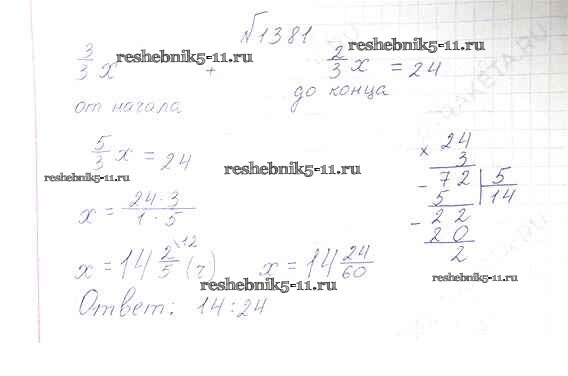 №1381
3/3 x + 2/3 x = 24
от начала до конца
5/3 x = 24
x = 24·3 / 1·5
x = 14 2/5 \12 (ч) x = 14 24/60
Ответ: 14:24
× 24
3
- 72 | 5
5 | 14
- 22
20
2
reshebnik5-11.ru
reshebnik5-11.ru
reshebnik5-11.ru
reshebnik5-11.ru
reshebnik5-11.ru
reshebnik5-11.ru